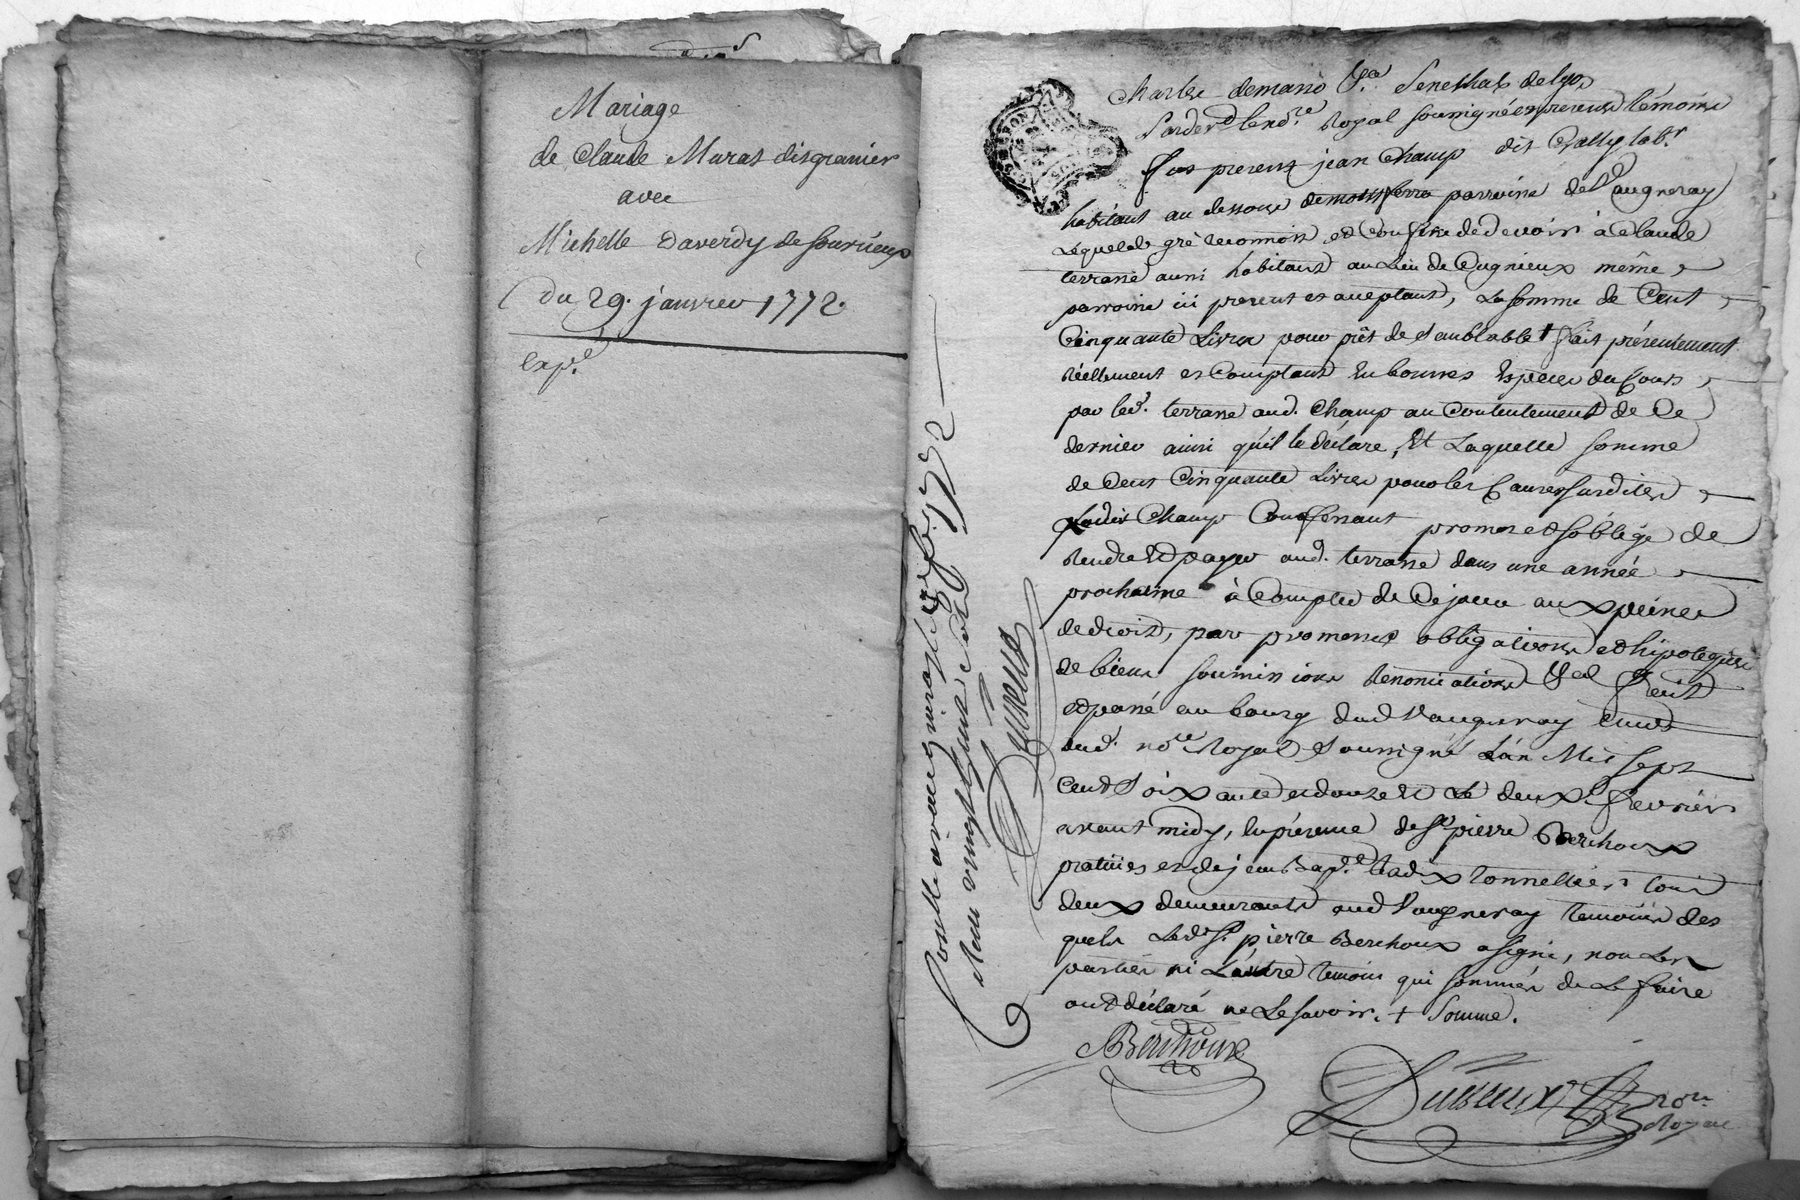 Mariage
de Claude Murat dit granier
avec
Michelle Daverdy de Sourcieux
Du 29. janvier 1772.
Exp.é
Charles demasso Ch.er Senechal de Lyon
Pardev.t le no.re Royal soussigné et presence témoins
fut present jean Champ dit Gally lab.r
habitant au dessous parroisse de Vaugneray
Lequel de gré reconnoit et confesse de devoir à Claude
terrasse aussi habitant au Lieu de même
parroisse ici present et acceptant, La somme de Cent
Cinquante Livres pour prêt de semblable + fait présentement
réellement et Comptant En bonnes Espèces du Cours
par led. terrasse aud. Champ au Contentement de Ce
dernier ainsi qu'il le déclare, Et Laquelle somme
de Cent Cinquante Livres pour les Causes susdites
Ledit Champ Confessant promet et s'oblige de
Rendre Et payer aud. terrasse dans une année
prochaine à Compter de Ce jour aux peines
de droit, par promesses obligations et hipoteques
de biens soumissions Renonciations Et fait
et passé au bourg dud Vaugneray Etude
dud. no.re Royal Soussigné L'an Mil sept
Cent Soixante et douze Et Le deux fevrier
avant midy, En présence de S.r pierre Berchoux
praticien et de jean Bap.te tonnellier tous
deux demeurants aud Vaugneray temoins des
quels Led. S.r pierre Berchoux a signé, non Les
parties ni L'autre temoin qui sommés de Le faire
ont déclaré ne Le savoir. + Somme.
Berchoux
no.re
Royal
Con.lle a vaugneray le fev. 1772